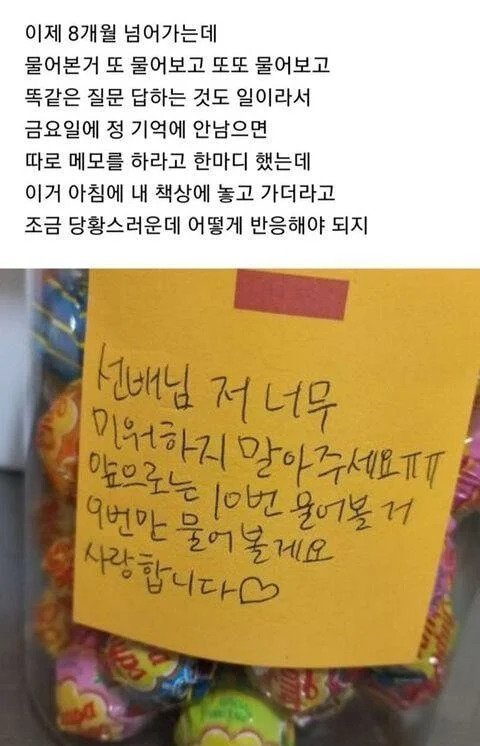 이제 8개월 넘어가는데
물어본거 또 물어보고 또또 물어보고
똑같은 질문 답하는 것도 일이라서
금요일에 정 기억에 안남으면
따로 메모를 하라고 한마디 했는데
이거 아침에 내 책상에 놓고 가더라고
조금 당황스러운데 어떻게 반응해야 되지
선배님 저 너무
미워하지 말아주세요ㅠㅠ
앞으로는 10번 물어볼 거
9번만 물어볼게요
사랑합니다♡